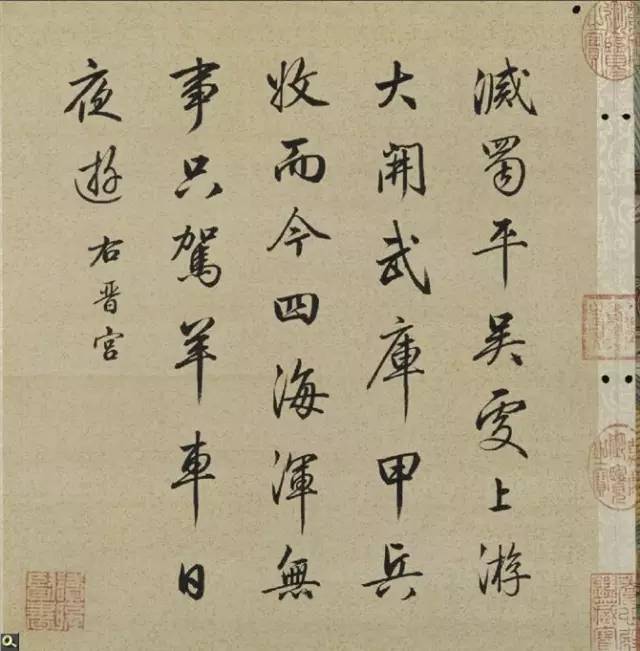 滅蜀平吳處上游
大開武庫甲兵
收而今四海渾無
事只駕羊車日
夜遊 右晋宮